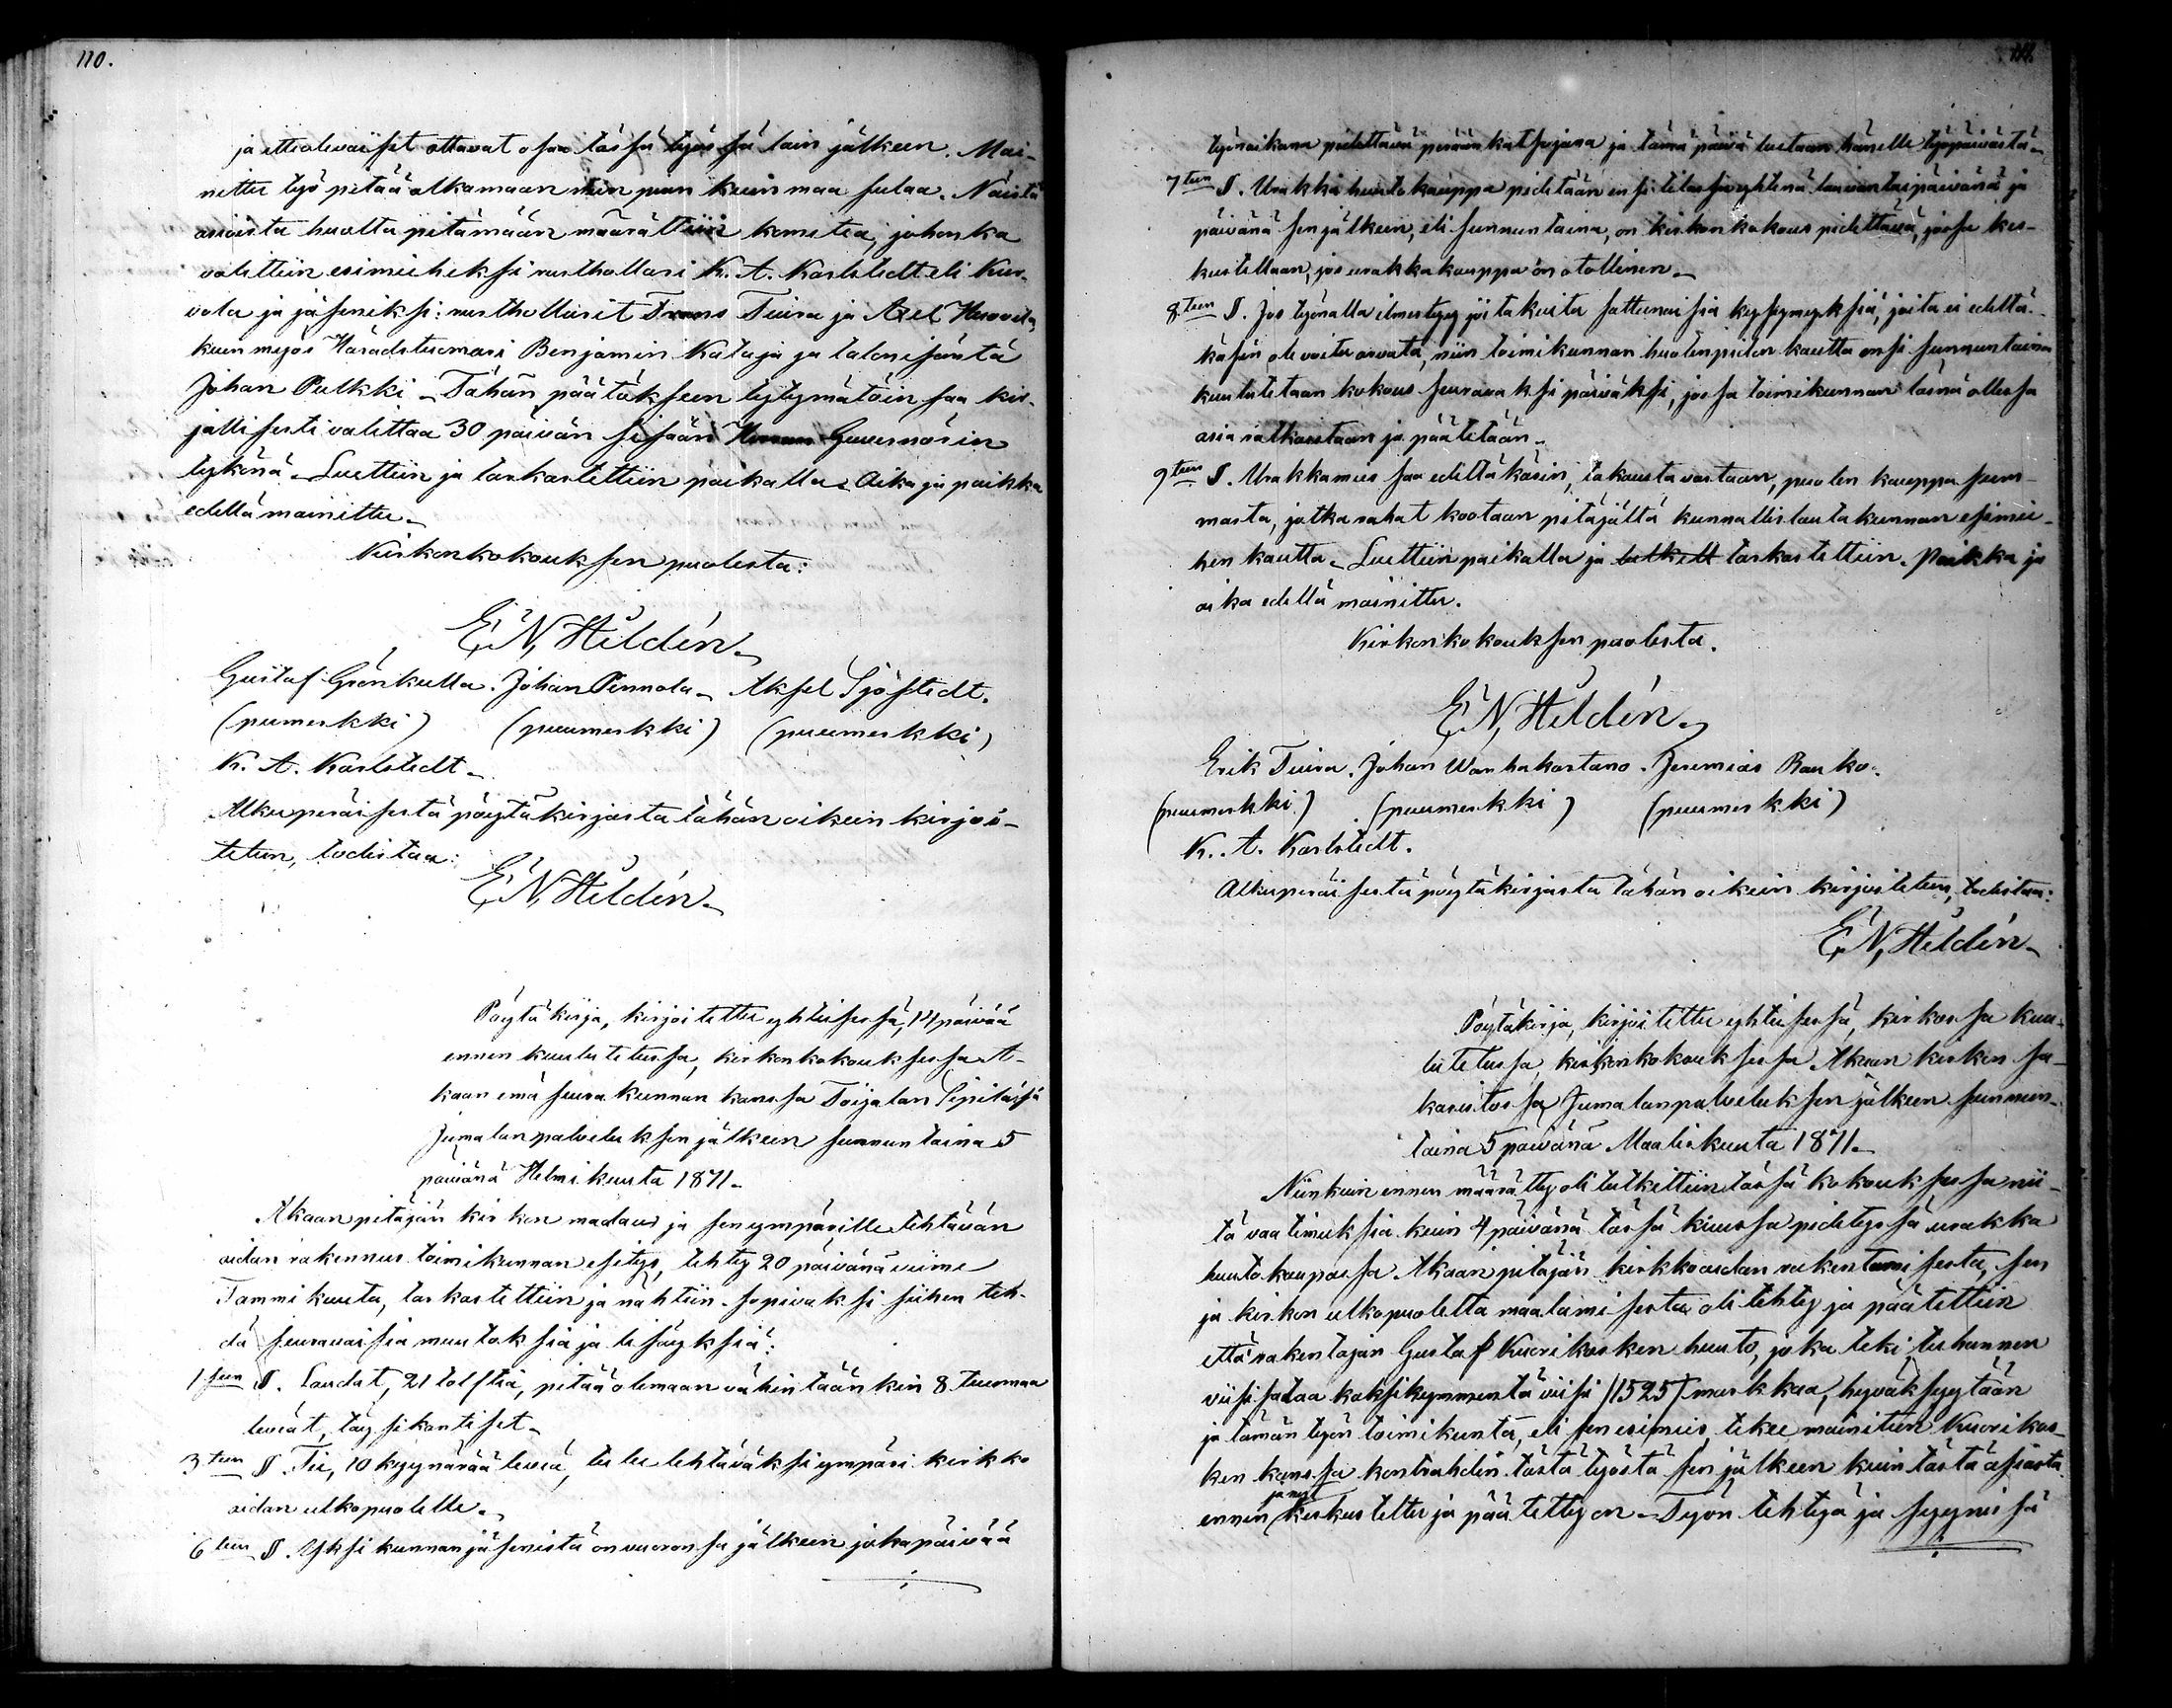 110.
ja itteolevaiset ottavat osaa tässä työssä lain jälkeen. Mai-
nittu työ pitää alkamaan niin pian kuin maa sulaa. Näistä
asioista huolta pitämään määrättiin komitea, johonka
valittiin esimieheksi rusthollari K. A. Karlstedt eli Kur-
vola ja jäseniksi: rusthollarit Frans Tiura ja Axel
kuin myös Häradstuomari Benjamin Kataja ja talonisäntä
Johan Pulkki. Tähän päätökseen tytymätöin saa kir-
jallisesti valittaa 30 päivän sisään Guvernörin
tykönä. Luettiin ja tarkastettiin paikalla. Aika ja paikka
edellä mainittu.
Kirkonkokouksen puolesta:
E. N. Hildén.
Gustaf Grönkulla. Johan Pennola. Aksel Sjöstedt.
(pumerkki) (puumerkki) (puumerkki)
K. A. Karlstedt.
Alkuperäisestä pöytäkirjasta tähän oikein kirjoi-
tetun, todistaa:
E. N. Hildén.
Pöytäkirja, kirjoitettu yhteisessä, 14 päivää
ennen kuulutetussa, kirkonkokouksessa A-
kaan emäseurakunnan kanssa Toijalan Sipilässä
Jumalanpalveluksen jälkeen sunnuntaina 5
päivänä Helmikuuta 1871.
Akaan pitäjän kirkon maalaus ja sen ympärille tehtävän
aidan rakennus toimikunnan esitys, tehty 20 päivänä viime
Tammikuuta, tarkastettiin ja nähtiin sopivaksi siihen teh-
dä seuravaisia muutoksia ja lisäyksiä:
1 sen §. Laudat, 21 tolftia, pitää olemaan vähintäänkin 8 tuumaa
leveät, täysikantiset.
3 ten §. Tie, 10 kyynärää leveä, tulee tehtäväksi ympäri kirkko
aidan ulkopuolelle.
6 ten §. Yksi kunnan jäsenistä on vuoronsa jälkeen joka päivää
työnaikana pidettävä peräänkatsojana ja tämä päivä luetaan hänelle työpäivästä.
7 ten §. Urakka huutokauppa pidetään ensi tilassa yhtenä lauvantaipäivänä ja
päivänä sen jälkeen, eli sunnuntaina, on kirkonkokous pidettävä, jossa kes-
kustellaan, jos urakka kauppa on otollinen.
8 ten §. Jos työnalla ilmestyy joitakuita sattunaisia kysymyksiä, joita ei edeltä-
käsin ole voitu arvata, niin toimikunnan huolenpidon kautta ensi sunnuntaina
kuulutetaan kokous seuravaksi päiväksi, jossa toimikunnan läsnä ollessa
asia ratkaistaan ja päätetään.
9 ten §. Urakkamies saa edeltäkäsin, takausta vastaan, puolen kauppa sum-
masta, jotka rahat kootaan pitäjältä kunnallislautakunnan esimie-
hen kautta. Luettiin paikalla ja tarkastettiin. Paikka ja
aika edellä mainittu.
Kirkonkokouksen puolesta.
E. N. Hildén.
Erik Tiura. Johan Wanhakartano. Jeremias Rauko.
(puumerkki) (puumerkki) (puumerkki)
K. A. Karlstedt.
Alkuperäisestä pöytäkirjasta tähän oikein kirjoitetun, todistaa:
E. N. Hildén.
Pöytäkirja, kirjoitettu yhteisessä, kirkossa kuu-
lutetussa, kirkonkokouksessa Akaan kirkon sa-
karistossa Jumalanpalveluksen jälkeen sunnun-
taina 5 päivänä Maaliskuuta 1871.
Niinkuin ennen määrätty oli tutkittiin tässä kokouksessa nii-
tä vaatimuksia kuin 4 päivänä tässä kuussa pidetyssä urakka
huutokaupassa Akaan pitäjän kirkkoaidan rakentamisesta, sen
ja kirkon ulkopuolelta maalamisesta oli tehty ja päätettiin
että rakentajan Gustaf Kuorikosken huuto, joka teki tuhannen
viisisataa kaksikymmentä viisi (1525) markkaa, hyväksyytään
ja tämän työn toimikunta, eli sen esimies, tekee mainitun Kuorikos-
ken kanssa kontrahdin tästä työstä sen jälkeen kuin tästä asiasta
ja nyt
ennen keskusteltu ja päätetty on. Työn tehtyä ja syynissä